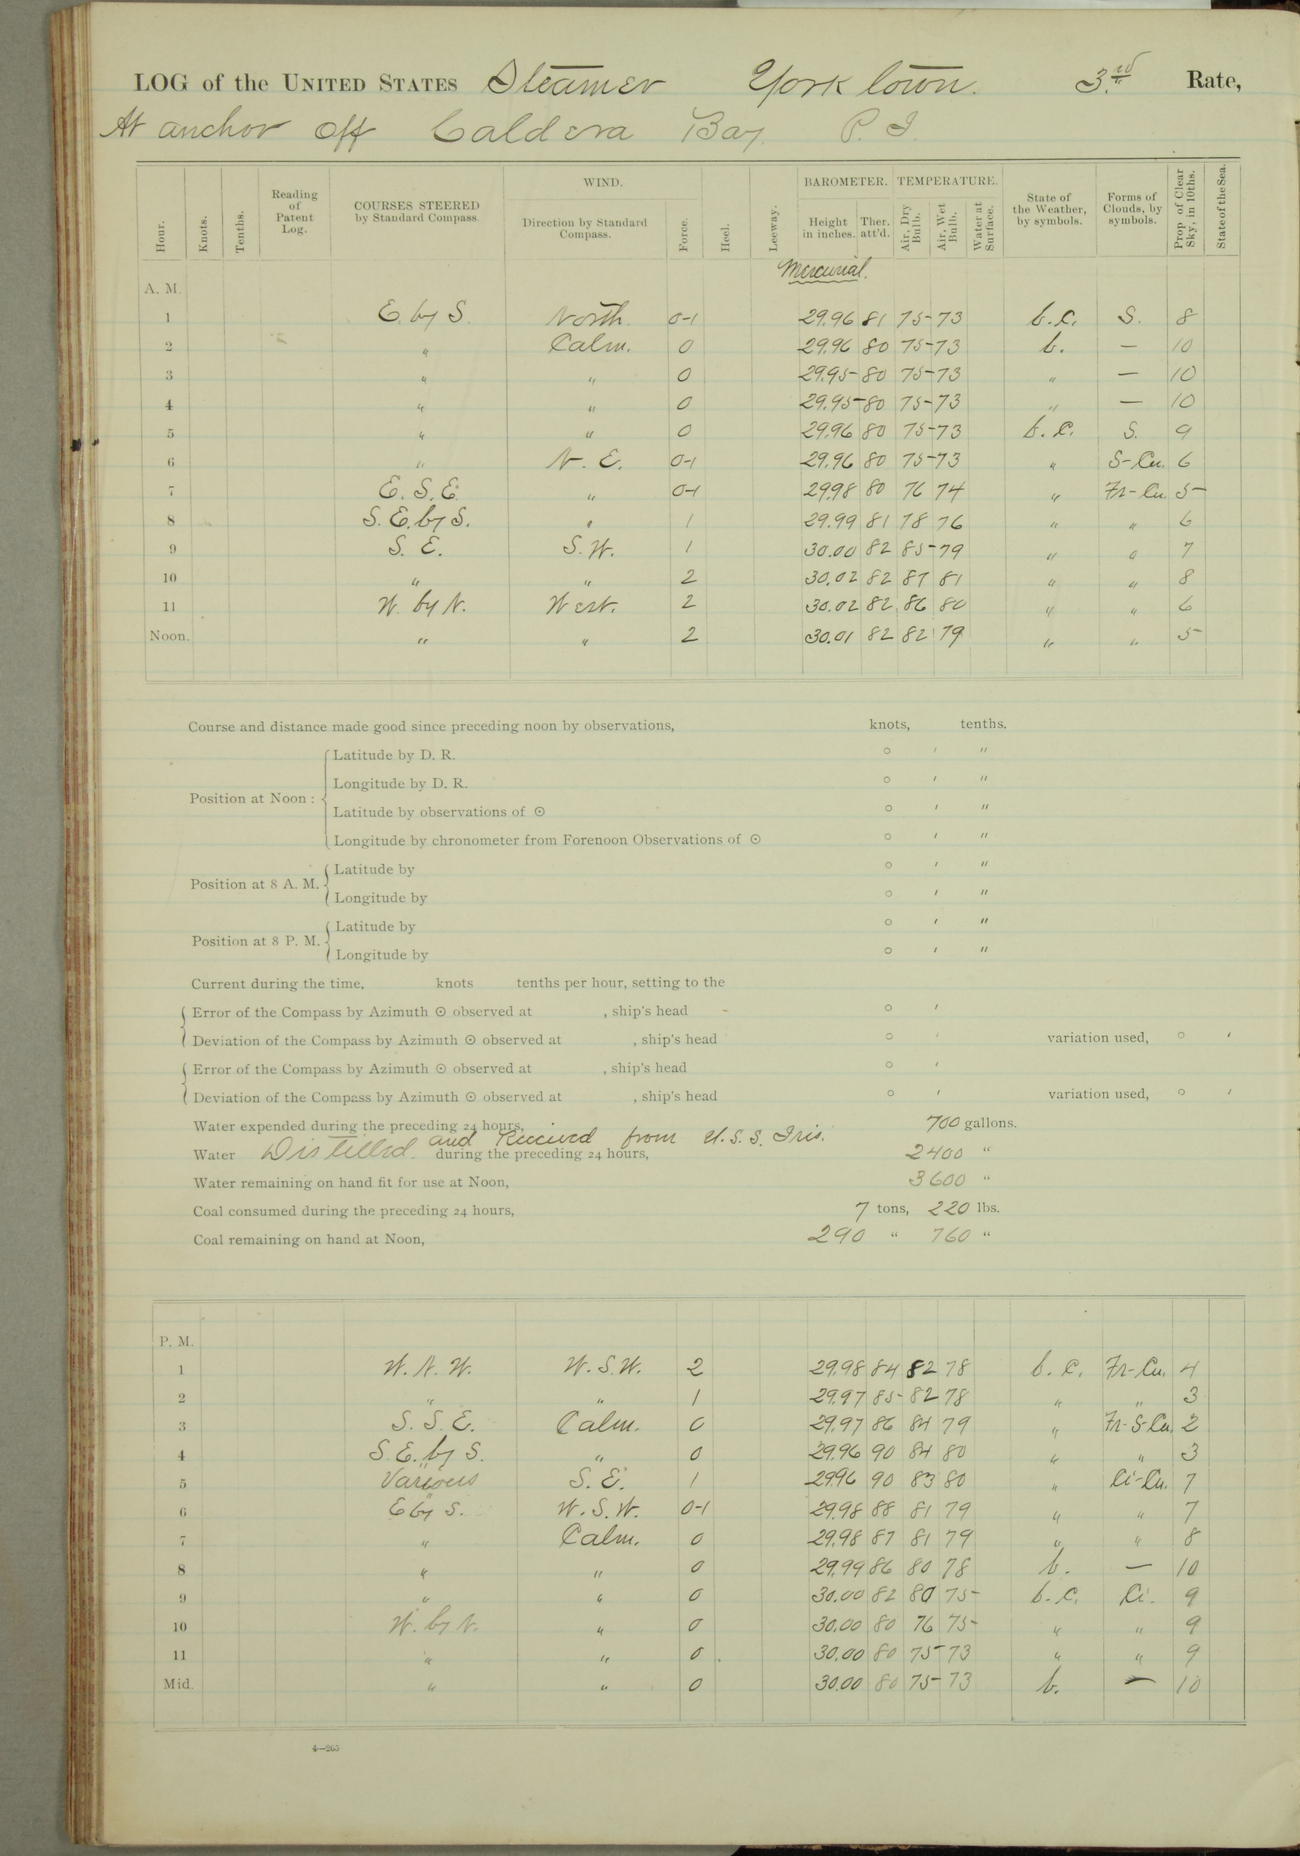 LOG of the UNITED STATES Steamer Yorktown. 3.rd Rate,
At anchor off Caldera Bay. P. I.
Hour. Knots. Tenths. Reading of Patent Log. COURSES STEERED by Standard Compass. WIND. Direction by Standard Compass. Force. Heel. Leeway. BAROMETER. Height in inches. Ther. att'd. TEMPERATURE. Air, Dry Bulb. Air, Wet Bulb. Water at Surface. State of the Weather, by symbols. Forms of Clouds, by symbols. Prop. of Clear Sky, in 10ths. State of the Sea.
Mercurial.
A. M.
1 E. by S. North. 0-1 29.96 81 75 73 b.c. S. 8
2 " Calm. 0 29.96 80 75 73 b. — 10
3 " " 0 29.95 80 75 73 " — 10
4 " " 0 29.95 80 75 73 " — 10
5 " " 0 29.96 80 75 73 b.c. S. 9
6 " N. E. 0-1 29.96 80 75 73 " S-Cu. 6
7 E. S. E. " 0-1 29.98 80 76 74 " Fr-Cu. 5
8 S. E. by S. " 1 29.99 81 78 76 " " 6
9 S. E. S. W. 1 30.00 82 85 79 " " 7
10 " " 2 30.02 82 87 81 " " 8
11 W. by N. West. 2 30.02 82 86 80 " " 6
Noon. " " 2 30.01 82 82 79 " " 5
Course and distance made good since preceding noon by observations, knots, tenths.
Position at Noon : Latitude by D. R. ° ′ ″
Longitude by D. R. ° ′ ″
Latitude by observations of ☉ ° ′ ″
Longitude by chronometer from Forenoon Observations of ☉ ° ′ ″
Position at 8 A. M. Latitude by ° ′ ″
Longitude by ° ′ ″
Position at 8 P. M. Latitude by ° ′ ″
Longitude by ° ′ ″
Current during the time, knots tenths per hour, setting to the
Error of the Compass by Azimuth ☉ observed at , ship's head ° ′
Deviation of the Compass by Azimuth ☉ observed at , ship's head ° ′ variation used, ° ′
Error of the Compass by Azimuth ☉ observed at , ship's head ° ′
Deviation of the Compass by Azimuth ☉ observed at , ship's head ° ′ variation used, ° ′
Water expended during the preceding 24 hours, 700 gallons.
Water Distilled and Received from U.S.S. Iris. during the preceding 24 hours, 2400 "
Water remaining on hand fit for use at Noon, 3600 "
Coal consumed during the preceding 24 hours, 7 tons, 220 lbs.
Coal remaining on hand at Noon, 290 " 760 "
P. M.
1 W. N. W. W. S. W. 2 29.98 84 82 78 b.c. Fr-Cu. 4
2 " " 1 29.97 85 82 78 " " 3
3 S. S. E. Calm. 0 29.97 86 84 79 " Fr-S-Cu. 2
4 S. E. by S. " 0 29.96 90 84 80 " " 3
5 Various S. E. 1 29.96 90 83 80 " Ci-Cu. 7
6 E by S. W. S. W. 0-1 29.98 88 81 79 " " 7
7 " Calm. 0 29.98 87 81 79 " " 8
8 " " 0 29.99 86 80 78 b. — 10
9 " " 0 30.00 82 80 75 b.c. Ci. 9
10 W. by N. " 0 30.00 80 76 75 " " 9
11 " " 0 30.00 80 75 73 " " 9
Mid. " " 0 30.00 80 75 73 b. — 10
4—265